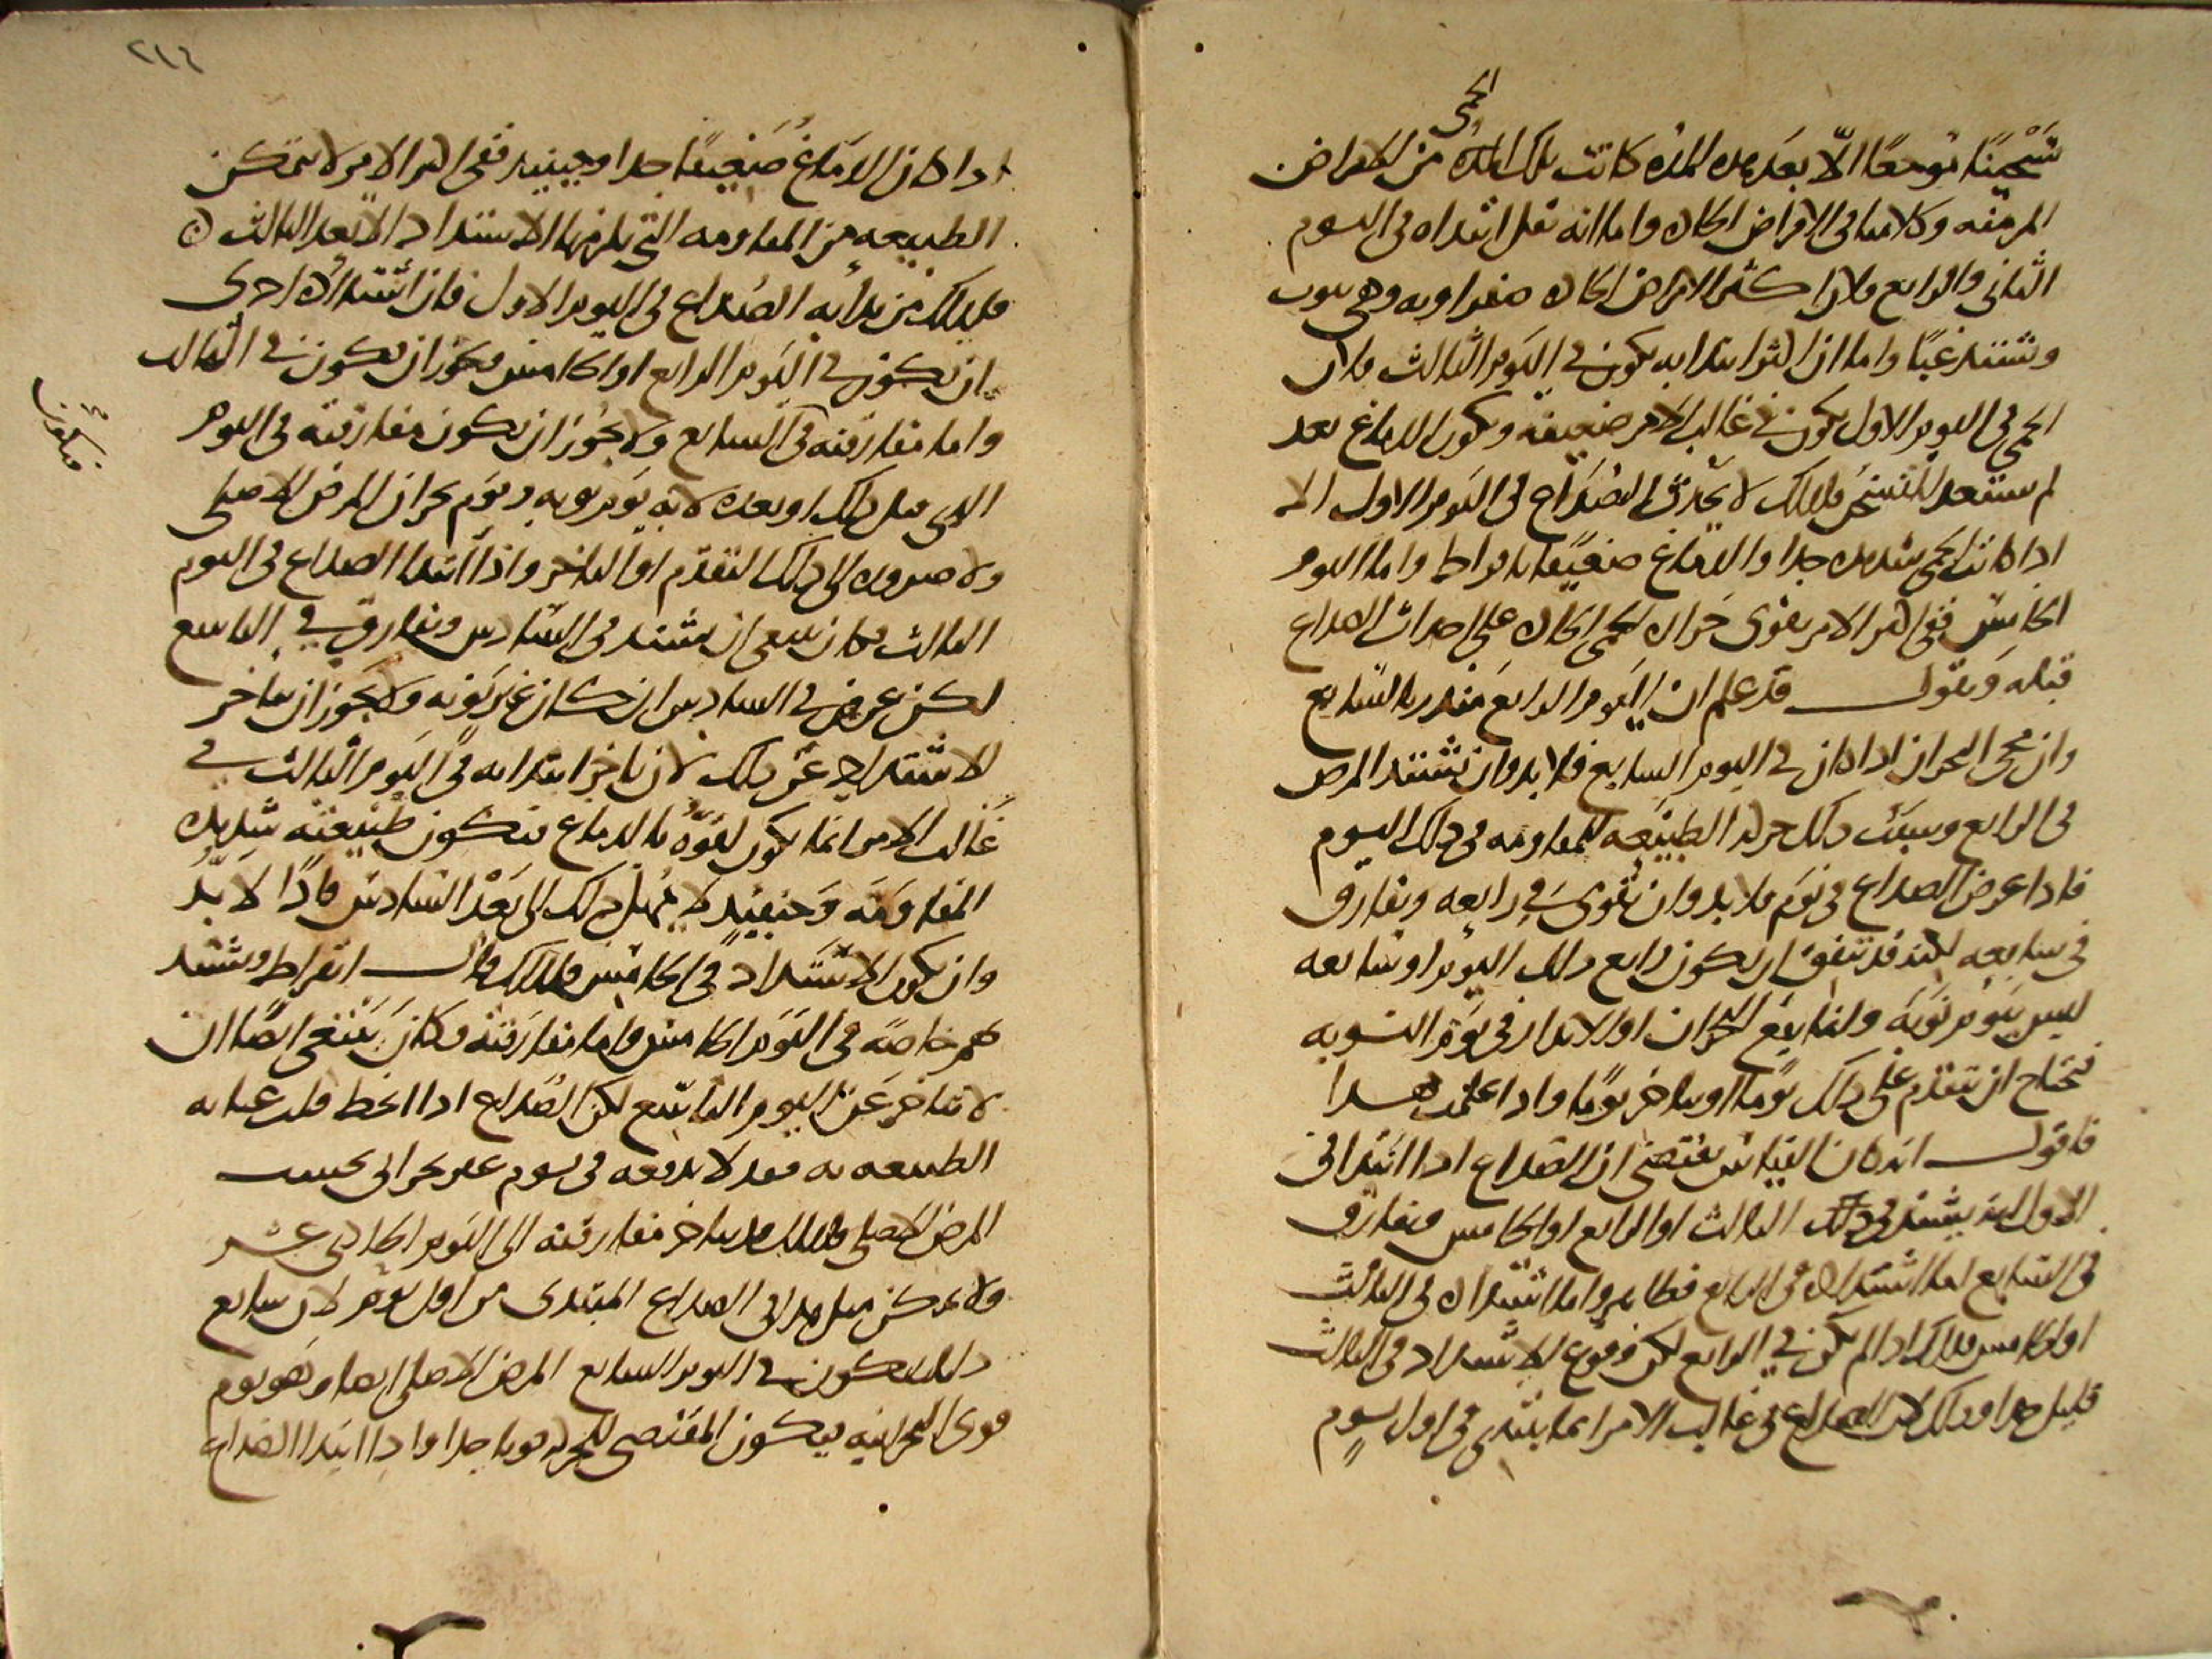 الحمى
تسخينًا موجعًا الّا بعد هذه المده كانت تلك المده من الامراض
المزمنه وكلامنا فى الامراض الحاده واما انه نقل ابتداه فى اليوم
الثانى والرابع فلان اكثر الامراض الحاده صفراويه وهى تنوب
وتشتد غبًا واما ان اكثر ابتدايه يكون فى اليوم الثالث فلان
الحمى فى اليوم الاول يكون فى غالب الامر ضعيفه ويكون الدماغ بعد
لم يستعد للتسخن فلذلك لا يحدث الصداع فى اليوم الاول الا
اذا كانت الحمى شديده جدا والدماغ ضعيفًا بافراط واما اليوم
الخامس ففى اكثر الامر يقوى حراره الحمى الحاده على احداث الصداع
قبله ونقول قد علم ان اليوم الرابع منذر بالسابع
وان مجى البحران اذا كان فى اليوم السابع فلا بد وان تشتد المرض
فى الرابع وسبب ذلك حركه الطبيعه للمقاومه فى ذلك اليوم
فاذا عرض الصداع فى يوم فلا بد وان يقوى فى رابعه ويفارق
فى سابعه لكنه قد يتفق ان يكون رابع ذلك اليوم او سابعه
ليس بيوم نوبه وانما يقع البحران او الانذار فى يوم النوبه
فيحتاج ان يتقدم على ذلك يومًا او يتاخر يومًا واذا علمت هذا
فاقول انه كان القياس يقتضى ان الصداع اذا ابتدا فى
الاول انه يشتد فى ذلك الثالث او الرابع او الخامس ويفارق
فى السابع اما اشتداده فى الرابع فظاهر واما اشتداده فى الثالث
او الخامس فلذلك اذا لم يكن فى الرابع لكن وقوع الاشتداد فى الثالث
قليل جدا وذلك لان الصداع فى غالب الامر انما يبتدى فى اول يوم
٢١٤
اذا كان الدماغ ضعيفًا جدا وحينيذ ففى اكثر الامر لا يتمكن
الطبيعه من المقاومه التى يلزمها الاشتداد الا بعد الثالث ه
فلذلك من بدابه الصداع فى اليوم الاول فان اشتداده احرى
ان يكون فى اليوم الرابع او الخامس ويجوز ان يكون فى الثالث
واما مفارقته فى السابع ولا يجوز ان يكون مفارقته فى اليوم
الذى قبل ذلك او بعده لانه يوم نوبه ويوم بحران المرض الاصلى
ولا ضروره الى ذلك التقدم او التاخر واذا ابتدا الصداع فى اليوم
الثالث فكان ينبغى ان يشتد فى السادس ويفارق فى التاسع
لكن عرض فى السادس ان كان غير نوبه ولا يجوز ان يتاخر
الاشتداد عن ذلك لان تاخر ابتدايه فى اليوم الثالث فى
غالب الامر انما يكون لقوّه بالدماغ فتكون طبيعته شديده
المقاومه وحينيذ لا يمهل ذلك الى بعد السادس فاذًا لا بدّ
وان يكون الاشتداد فى الخامس فلذلك قال ابقراط ويشتد
بهم خاصه فى اليوم الخامس واما مفارقته فكان ينبغى ايضًا ان
لا يتاخر عن اليوم التاسع لكن الصداع اذا انحط قلت عنايه
الطبيعه به فقد لا يدفعه فى يوم غير بحرانى بحسب
المرض الاصلى فلذلك قد يتاخر مفارقته الى اليوم الحادى عشر
ولا يمكن مثل هذا فى الصداع المبتدى من اول يوم لان سابع
ذلك يكون فى اليوم السابع المرض الاصلى ايضا وهو يوم
قوى البحرانيه فيكون المقتضى للحركه قويا جدا واذا ابتدا الصداع
فيكون